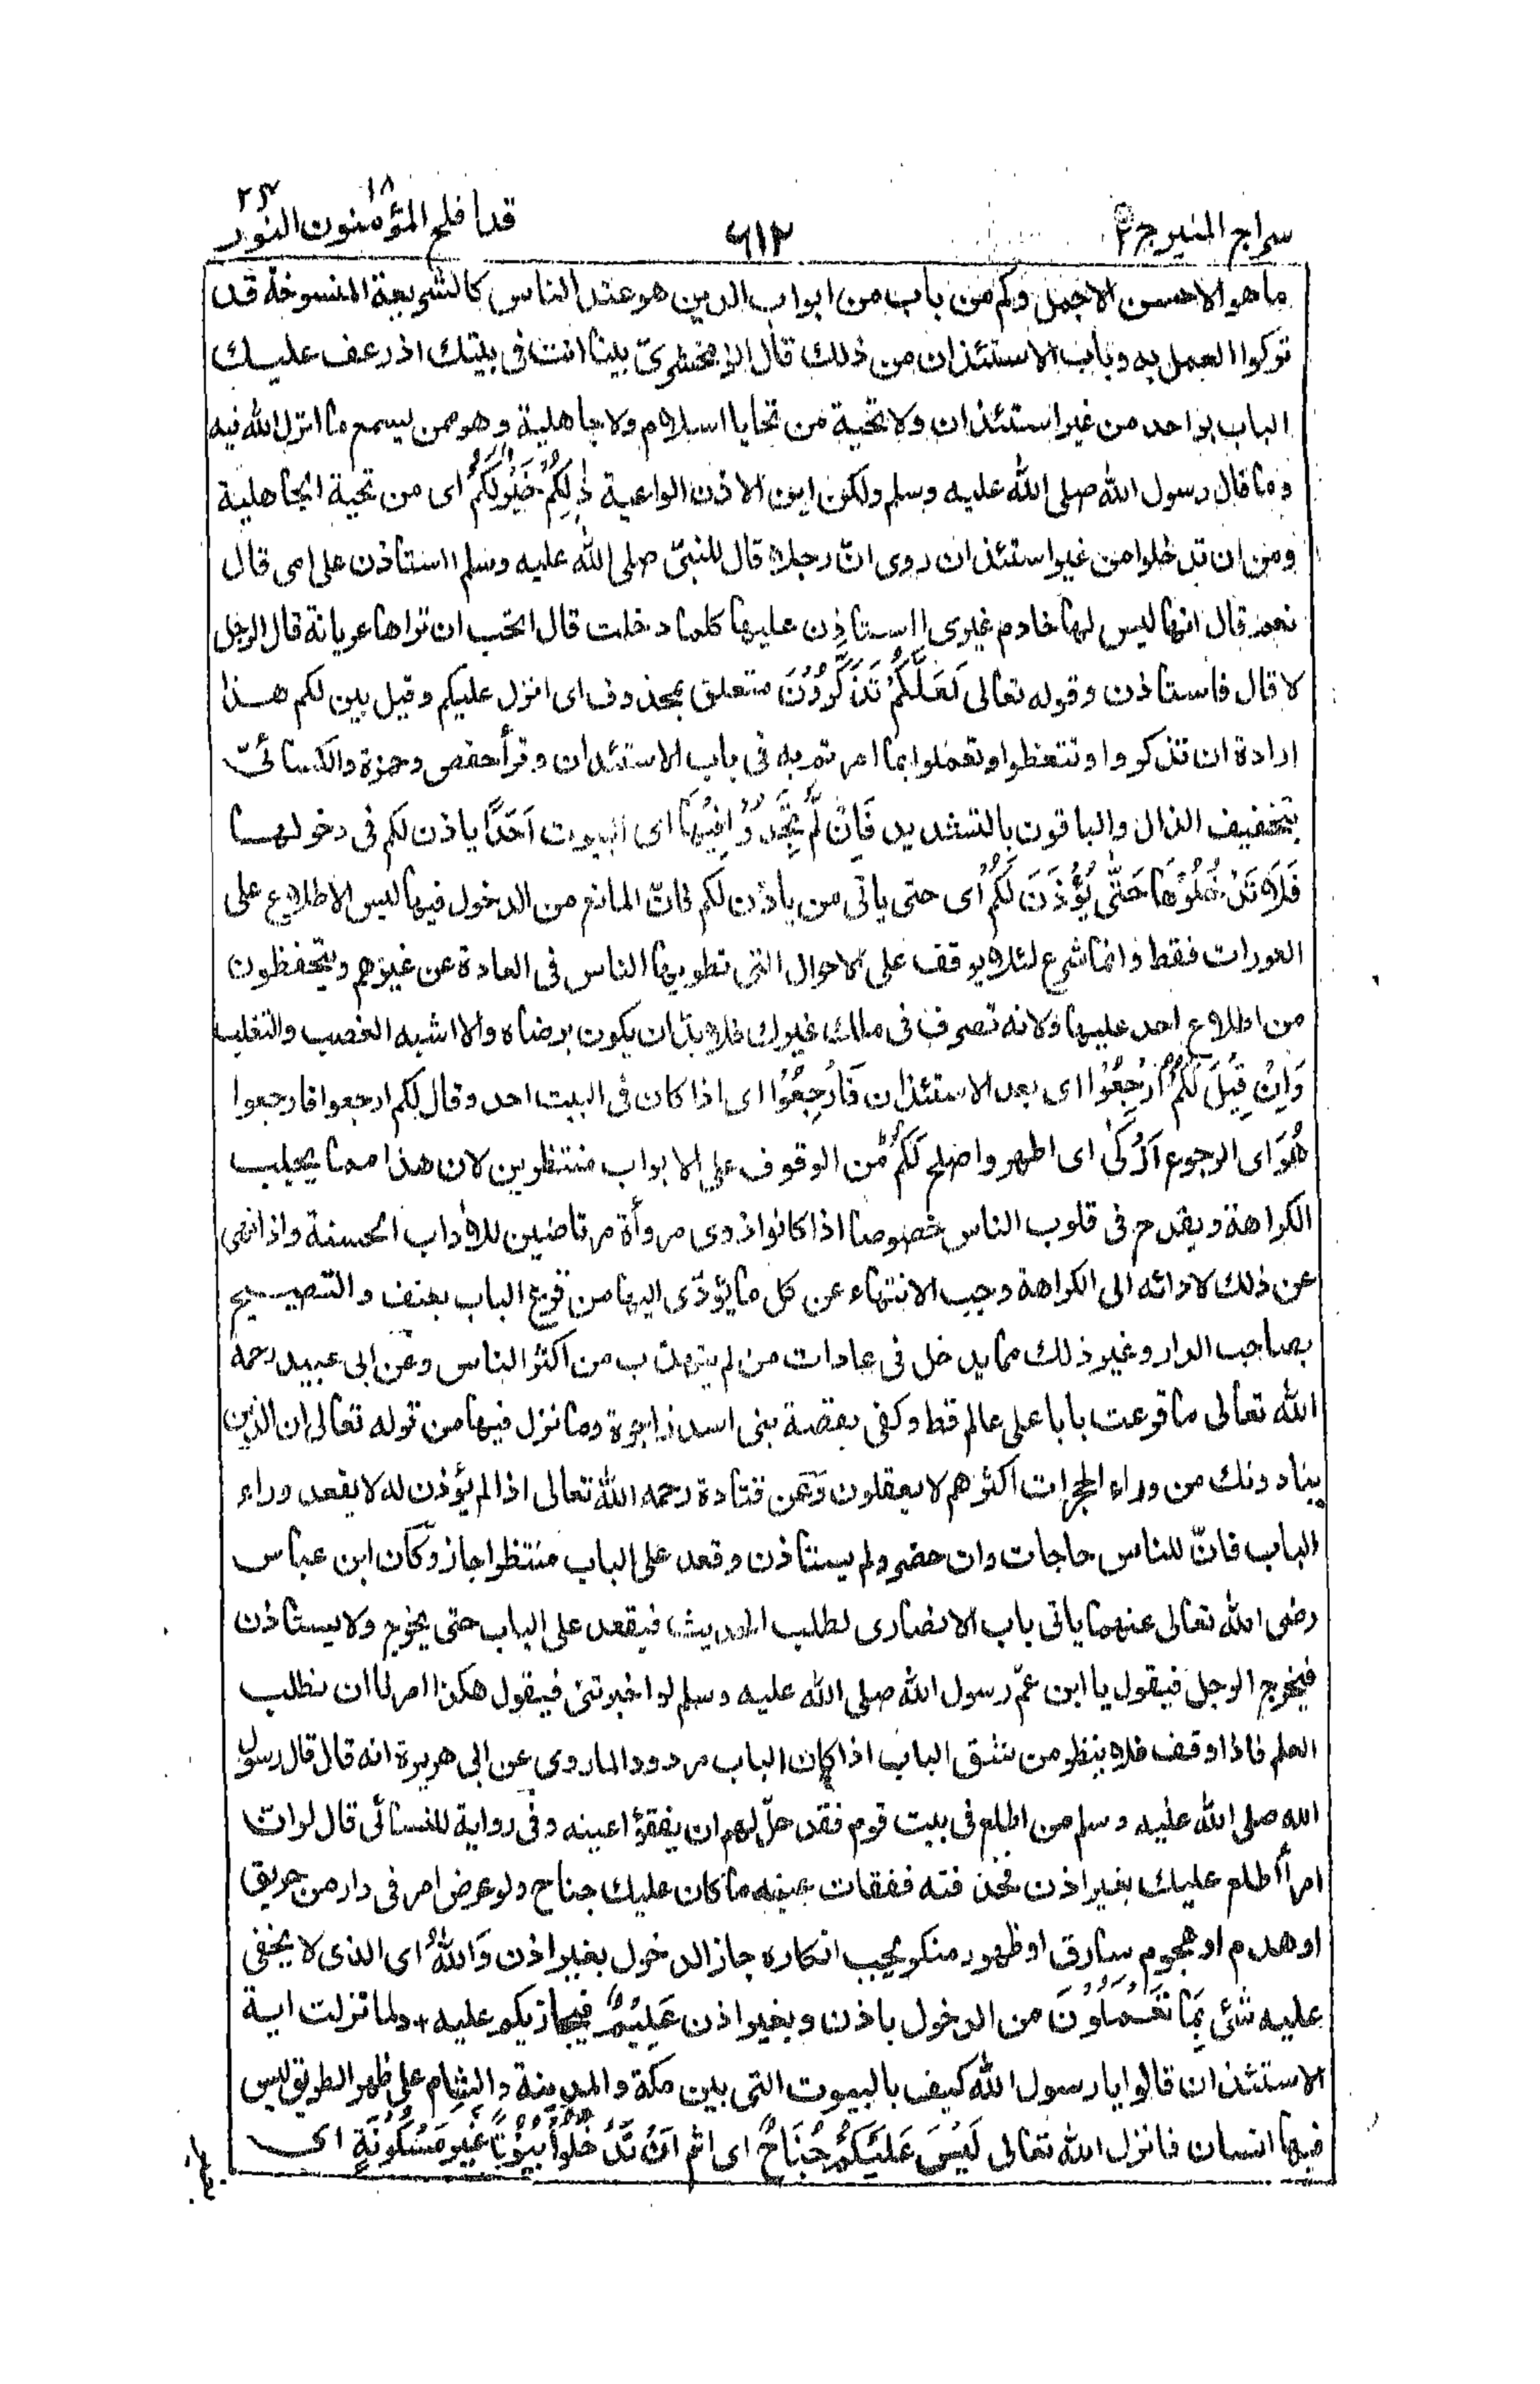 سراج المنير ج۲
۶۱۲
قد افلح المؤمنون ۱۸ النور ۲۴
ما هو الاحسن الاجمل وكم من باب من ابواب الدين هو عند الناس كالشريعة المنسوخة قد
تركوا العمل به وباب الاستئذان من ذلك قال الزمخشرىّ بينا انت فى بيتك اذ رعف عليك
الباب بواحد من غير استئذان ولا تحية من تحايا اسلام ولا جاهلية وهو ممن يسمع ما انزل الله فيه
وما قال رسول الله صلى الله عليه وسلم ولكن اين الاذن الواعية ذٰلِكُمْ خَيْرٌ لَّكُمْ اى من تحية الجاهلية
ومن ان تدخلوا من غير استئذان روى انّ رجلا قال للنبىّ صلى الله عليه وسلم ااستاذن على امى قال
نعم قال انها ليس لها خادم غيرى ااستاذن عليها كلما دخلت قال اتحب ان تراها عريانة قال الرجل
لا قال فاستاذن وقوله تعالى لَعَلَّكُمْ تَذَكَّرُوْنَ متعلق بمحذوف اى انزل عليكم وقيل بين لكم هذا
ارادة ان تذكروا وتتعظوا وتعملوا بما امرتم به فى باب الاستئذان وقرأ حفص وحمزة والكسائىّ
بتخفيف الذال والباقون بالتشديد فَاِنْ لَّمْ تَجِدُوْا فِيْهَا اى البيوت اَحَدًا ياذن لكم فى دخولها
فَلَا تَدْخُلُوْهَا حَتّٰى يُؤْذَنَ لَكُمْ اى حتى ياتى من ياذن لكم فانّ المانع من الدخول فيها ليس الاطلاع على
العورات فقط وانما شرع لئلا يوقف على الاحوال التى تطويها الناس فى العادة عن غيرهم ويتحفظون
من اطلاع احد عليها ولانه تصرف فى ملك غيرك فلا بدّ ان يكون برضاه والا اشبه الغصب والتغلب
وَاِنْ قِيْلَ لَكُمُ ارْجِعُوْا اى بعد الاستئذان فَارْجِعُوْا اى اذا كان فى البيت احد وقال لكم ارجعوا فارجعوا
هُوَ اى الرجوع اَزْكٰى اى اطهر واصلح لَكُمْ من الوقوف على الابواب منتظرين لان هذا مما يجلب
الكراهة ويقدح فى قلوب الناس خصوصا اذا كانوا ذوى مروأة مرتاضين للاداب الحسنة واذا نهى
عن ذلك لادائه الى الكراهة وجب الانتهاء عن كل ما يؤدّى اليها من قرع الباب بعنف والتصييح
بصاحب الدار وغير ذلك مما يدخل فى عادات من لم يتهذب من اكثر الناس وعن ابى عبيد رحمه
الله تعالى ما قرعت بابا على عالم قط وكفى بقصة بنى اسد زاجرة وما نزل فيها من قوله تعالى ان الذين
ينادونك من وراء الحجرات اكثرهم لا يعقلون وعن قتادة رحمه الله تعالى اذا لم يؤذن له لا يقعد وراء
الباب فانّ للناس حاجات وان حضر ولم يستاذن وقعد على الباب منتظرا جاز وكان ابن عباس
رضى الله تعالى عنهما ياتى باب الانصارى لطلب الحديث فيقعد على الباب حتى يخرج ولا يستاذن
فيخرج الرجل فيقول يا ابن عمّ رسول الله صلى الله عليه وسلم لو اخبرتنى فيقول هكذا امرنا ان نطلب
العلم فاذا وقف فلا ينظر من شق الباب اذا كان الباب مردودا لما روى عن ابى هريرة انه قال قال رسول
الله صلى الله عليه وسلم من اطلع فى بيت قوم فقد حلّ لهم ان يفقؤا عينه وفى رواية للنسائى قال لو انّ
امرأ اطلع عليك بغير اذن فخذفته ففقات عينه ما كان عليك جناح ولو عرض امر فى دار من حريق
او هدم او هجوم سارق او ظهور منكر يجب انكاره جاز الدخول بغير اذن وَاللهُ اى الذى لا يخفى
عليه شئ بِمَا تَعْمَلُوْنَ من الدخول باذن وبغير اذن عَلِيْمٌ فيجازيكم عليه + ولما نزلت اية
الاستئذان قالوا يا رسول الله كيف بالبيوت التى بين مكة والمدينة والشام على ظهر الطريق ليس
فيها انسان فانزل الله تعالى لَيْسَ عَلَيْكُمْ جُنَاحٌ اى اثم اَنْ تَدْخُلُوْا بُيُوْتًا غَيْرَ مَسْكُوْنَةٍ اى